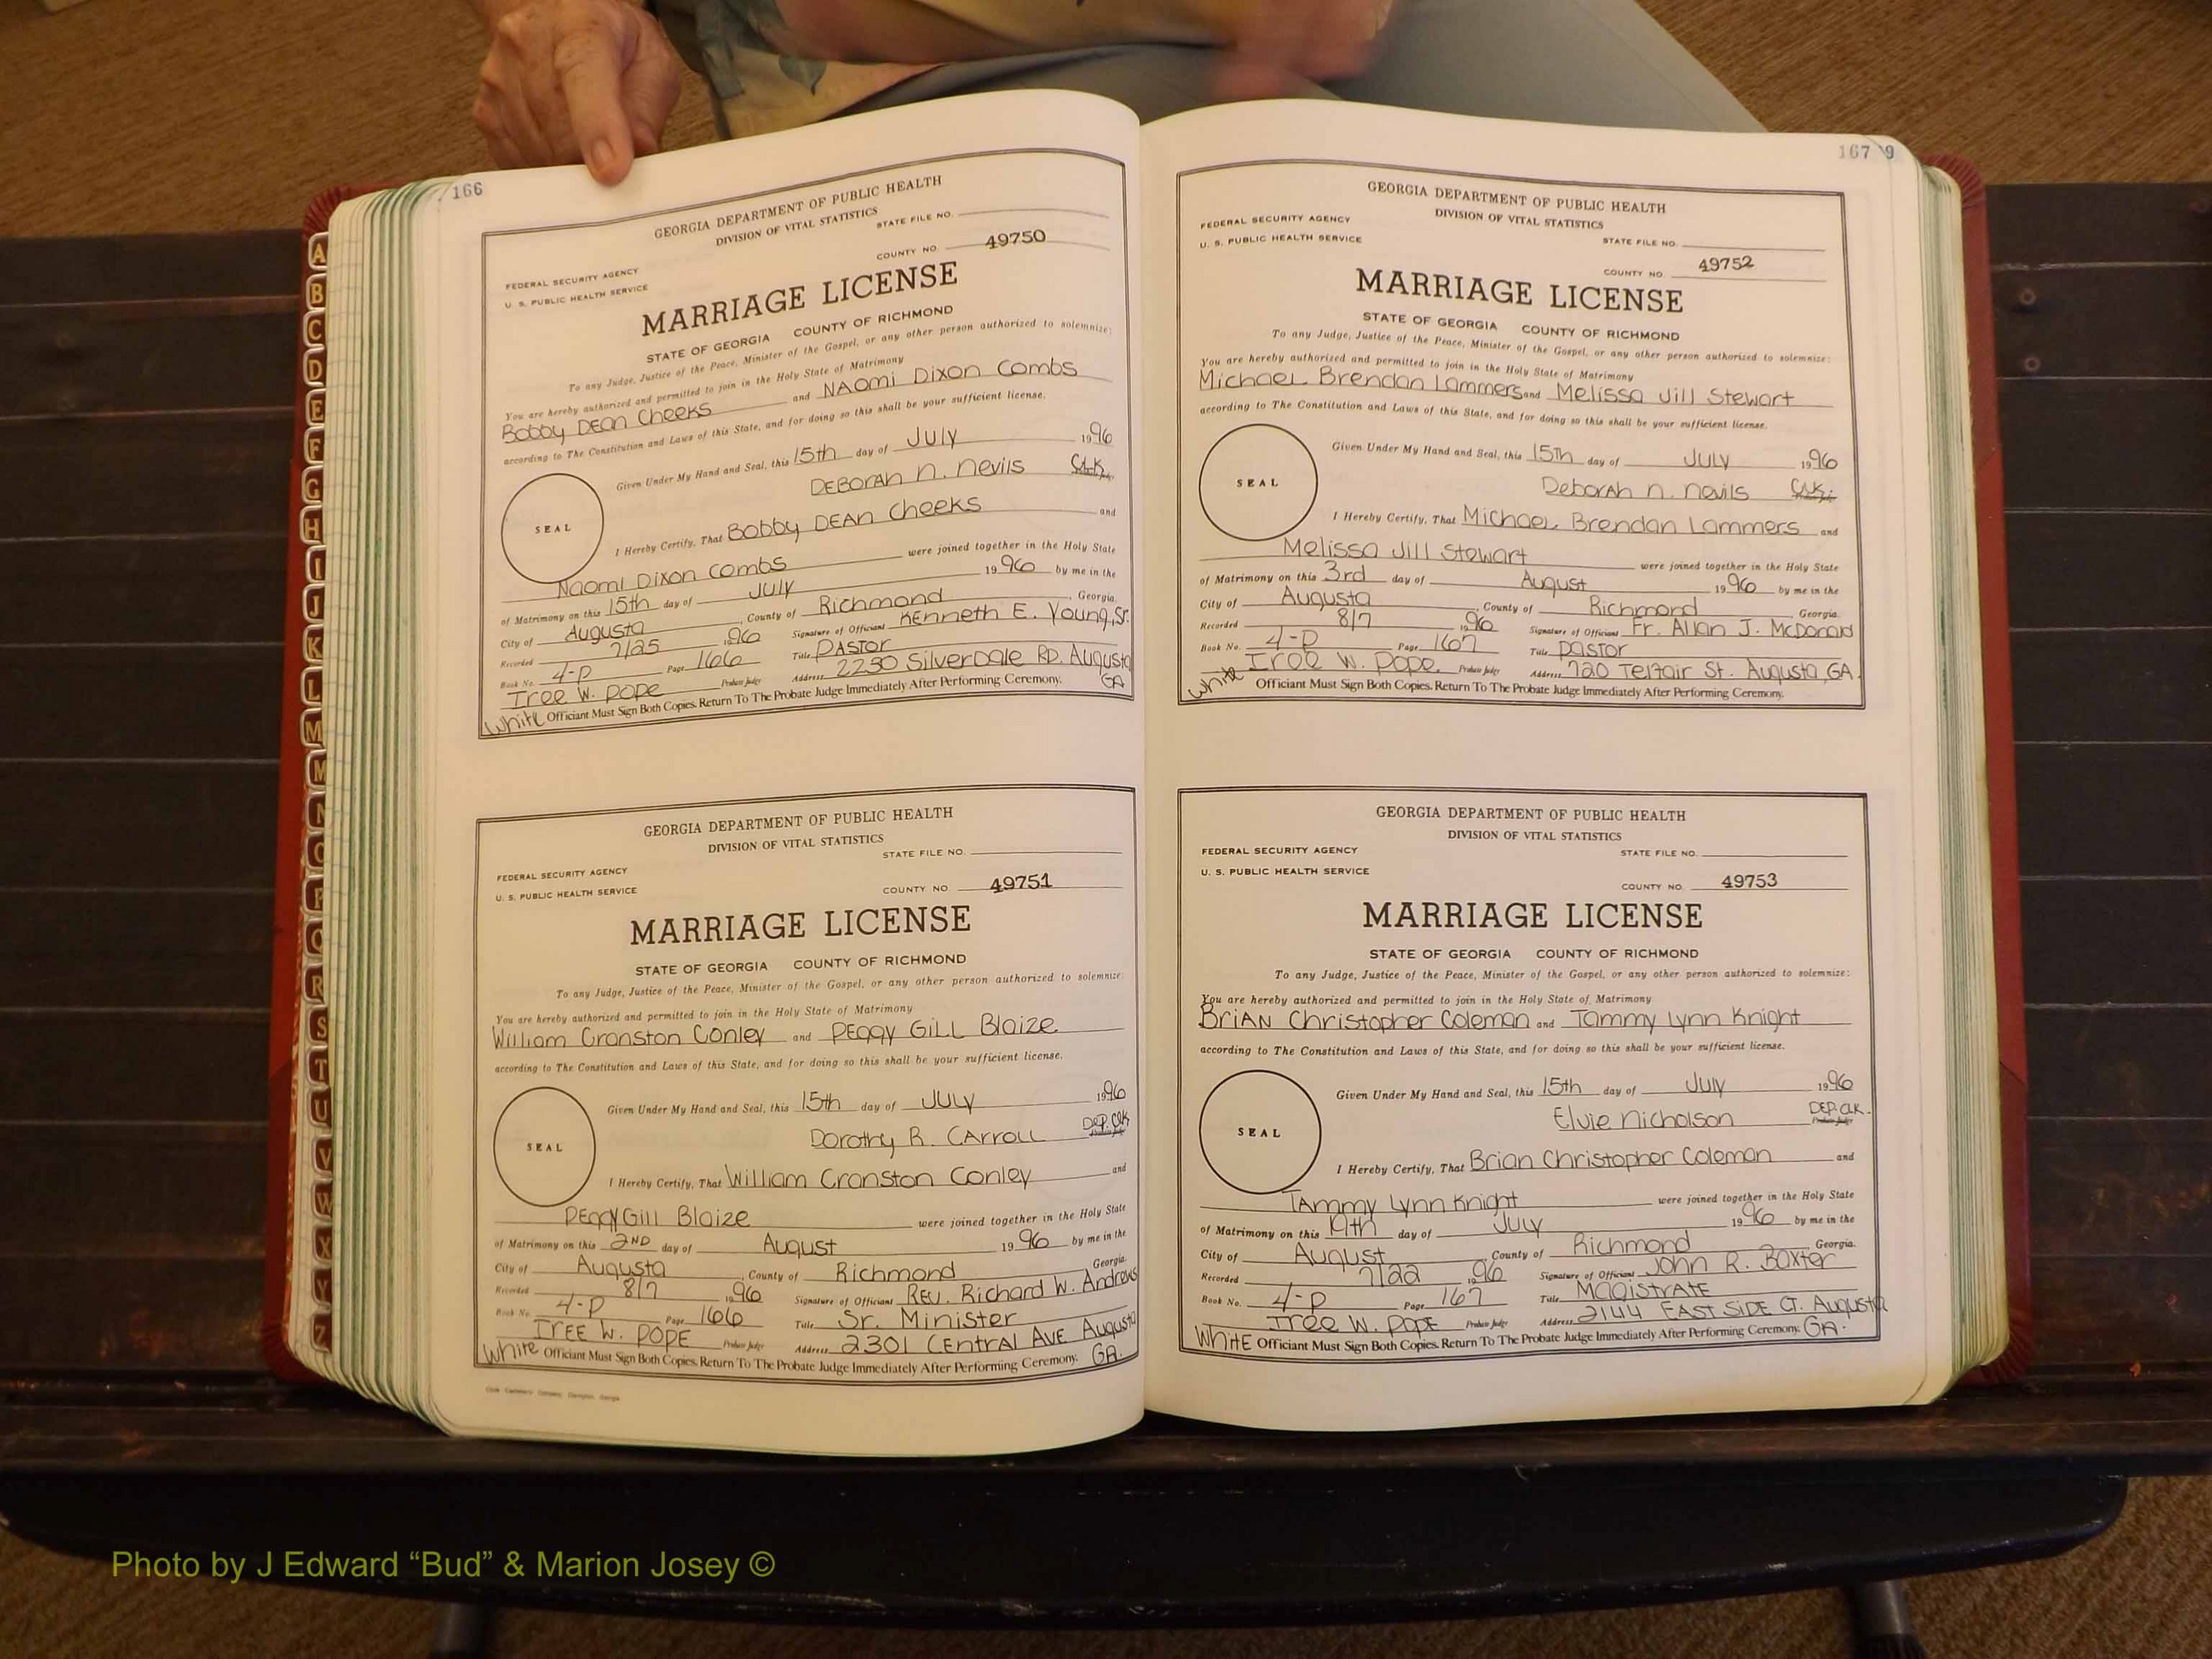 166
GEORGIA DEPARTMENT OF PUBLIC HEALTH
DIVISION OF VITAL STATISTICS
STATE FILE NO.
COUNTY NO. 49750
FEDERAL SECURITY AGENCY
U. S. PUBLIC HEALTH SERVICE
MARRIAGE LICENSE
STATE OF GEORGIA COUNTY OF RICHMOND
To any Judge, Justice of the Peace, Minister of the Gospel, or any other person authorized to solemnize:
You are hereby authorized and permitted to join in the Holy State of Matrimony
Bobby DEan Cheeks and NAomi Dixon Combs
according to The Constitution and Laws of this State, and for doing so this shall be your sufficient license.
Given Under My Hand and Seal, this 15th day of July 1996
SEAL
DEBORAH n. nevils
I Hereby Certify, That Bobby DEAn Cheeks and
Naomi Dixon Combs were joined together in the Holy State
of Matrimony on this 15th day of July 1996 by me in the
City of Augusta, County of Richmond, Georgia.
Recorded 7/25 1996 Signature of Officiant KEnneth E. Young, Sr.
Book No. 4-P Page 166 Title PASTOR
Iree W. Pope Probate Judge Address 2230 SilverDale RD. Augusta GA
White Officiant Must Sign Both Copies. Return To The Probate Judge Immediately After Performing Ceremony.
GEORGIA DEPARTMENT OF PUBLIC HEALTH
DIVISION OF VITAL STATISTICS
STATE FILE NO.
FEDERAL SECURITY AGENCY
U. S. PUBLIC HEALTH SERVICE
COUNTY NO. 49751
MARRIAGE LICENSE
STATE OF GEORGIA COUNTY OF RICHMOND
To any Judge, Justice of the Peace, Minister of the Gospel, or any other person authorized to solemnize:
You are hereby authorized and permitted to join in the Holy State of Matrimony
William Cranston Conley and PEggy Gill Blaize
according to The Constitution and Laws of this State, and for doing so this shall be your sufficient license.
Given Under My Hand and Seal, this 15th day of July 1996
SEAL
Dorothy R. CARROLL DEP. Clk
I Hereby Certify, That William Cranston Conley and
PEggy Gill Blaize were joined together in the Holy State
of Matrimony on this 2ND day of August 1996 by me in the
City of Augusta, County of Richmond Georgia.
Recorded 8/7 1996 Signature of Officiant REV. Richard W. Andrews
Book No. 4-P Page 166 Title Sr. Minister
IREE W. POPE Probate Judge Address 2301 CEntral AVE Augusta GA.
White Officiant Must Sign Both Copies. Return To The Probate Judge Immediately After Performing Ceremony.
167 9
GEORGIA DEPARTMENT OF PUBLIC HEALTH
DIVISION OF VITAL STATISTICS
FEDERAL SECURITY AGENCY
U. S. PUBLIC HEALTH SERVICE
STATE FILE NO.
COUNTY NO. 49752
MARRIAGE LICENSE
STATE OF GEORGIA COUNTY OF RICHMOND
To any Judge, Justice of the Peace, Minister of the Gospel, or any other person authorized to solemnize:
You are hereby authorized and permitted to join in the Holy State of Matrimony
Michael Brendan Lammers and Melissa Jill Stewart
according to The Constitution and Laws of this State, and for doing so this shall be your sufficient license.
Given Under My Hand and Seal, this 15Th day of JULY 1996
SEAL
DeborAH n. nevils
I Hereby Certify, That Michael Brendan Lammers and
Melissa Jill Stewart were joined together in the Holy State
of Matrimony on this 3rd day of August 1996 by me in the
City of Augusta, County of Richmond Georgia.
Recorded 8/7 1996 Signature of Officiant Fr. Allan J. McDonald
Book No. 4-P Page 167 Title Pastor
Iree W. Pope Probate Judge Address 720 Telfair St. Augusta, GA.
White Officiant Must Sign Both Copies. Return To The Probate Judge Immediately After Performing Ceremony.
GEORGIA DEPARTMENT OF PUBLIC HEALTH
DIVISION OF VITAL STATISTICS
FEDERAL SECURITY AGENCY
STATE FILE NO.
U. S. PUBLIC HEALTH SERVICE
COUNTY NO. 49753
MARRIAGE LICENSE
STATE OF GEORGIA COUNTY OF RICHMOND
To any Judge, Justice of the Peace, Minister of the Gospel, or any other person authorized to solemnize:
You are hereby authorized and permitted to join in the Holy State of Matrimony
BriAN Christopher Coleman and Tammy Lynn Knight
according to The Constitution and Laws of this State, and for doing so this shall be your sufficient license.
Given Under My Hand and Seal, this 15th day of July 1996
SEAL
Elvie Nicholson DEP. CLK.
I Hereby Certify, That Brian Christopher Coleman and
TAmmy Lynn Knight were joined together in the Holy State
of Matrimony on this 19th day of July 1996 by me in the
City of August, County of Richmond, Georgia.
Recorded 7/22 1996 Signature of Officiant John R. Baxter
Book No. 4-P Page 167 Title MAGistrAtE
Iree W. POPE Probate Judge Address 2144 EAST SiDE CT. Augusta GA.
WHITE Officiant Must Sign Both Copies. Return To The Probate Judge Immediately After Performing Ceremony.
A
B
C
D
E
F
G
H
I
J
K
L
M
M
N
O
P
Q
R
S
T
U
V
W
X
Y
Z
Photo by J Edward “Bud” & Marion Josey ©